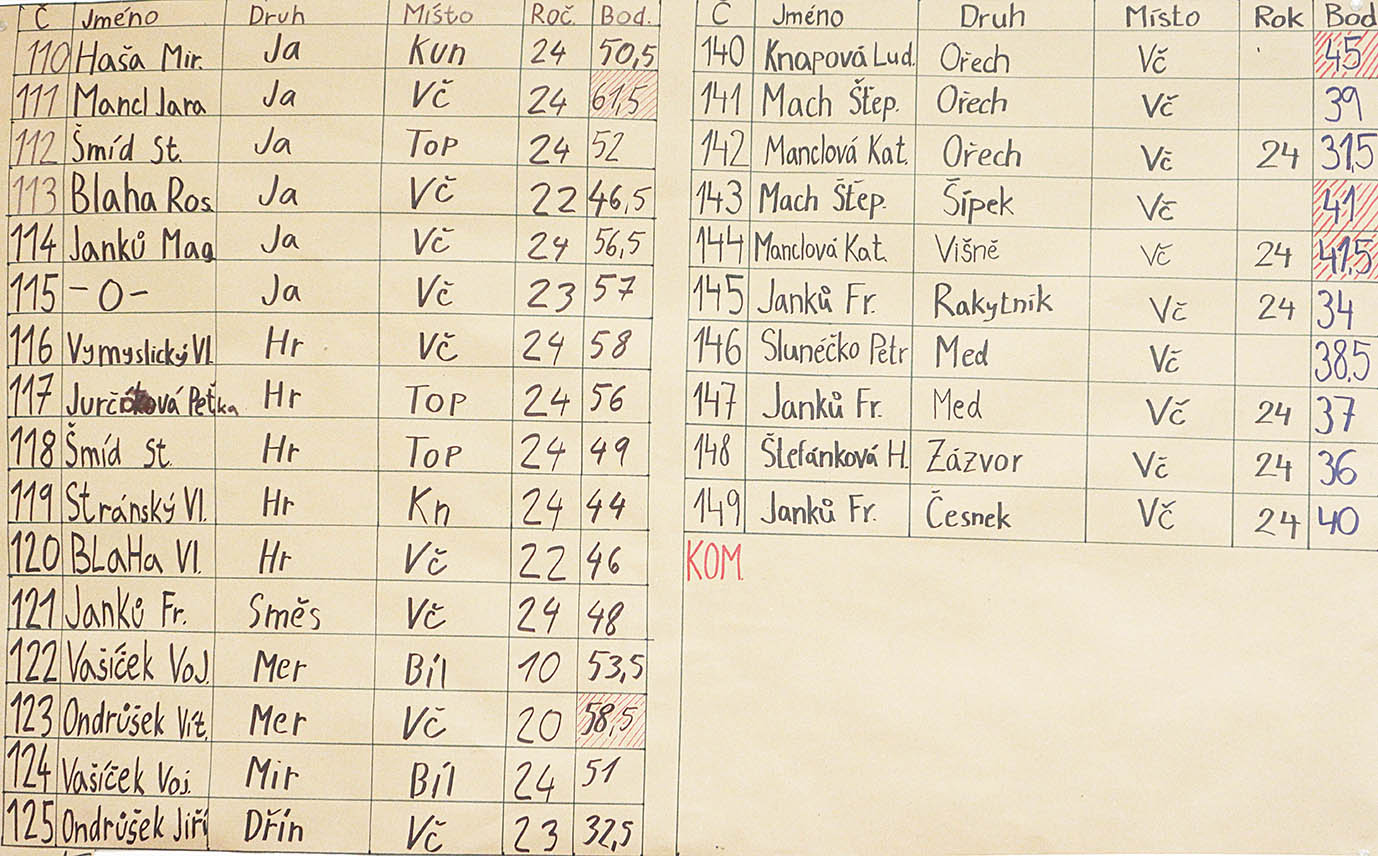 Č Jméno Druh Místo Roč. Bod.
110 Haša Mir. Ja Kun 24 50,5
111 Mancl Jara Ja Vč 24 61,5
112 Šmíd St. Ja Top 24 52
113 Blaha Ros. Ja Vč 22 46,5
114 Janků Mag Ja Vč 24 56,5
115 -O- Ja Vč 23 57
116 Vymyslický Vl. Hr Vč 24 58
117 Hr Top 24 56
118 Šmíd St. Hr Top 24 49
119 Stránský Vl. Hr Kn 24 44
120 BLaHa Vl. Hr Vč 22 46
121 Janků Fr. Směs Vč 24 48
122 Vašíček Voj. Mer Bíl 10 53,5
123 Ondrůšek Vít. Mer Vč 20 58,5
124 Vašíček Voj. Mir Bíl 24 51
125 Ondrůšek Jiří Dřín Vč 23 32,5
Č Jméno Druh Místo Rok Bod
140 Knapová Lud. Ořech Vč 45
141 Mach Štep. Ořech Vč 39
142 Manclová Kat. Ořech Vč 24 31,5
143 Mach Štep. Šípek Vč 41
144 Manclová Kat. Višně Vč 24 41,5
145 Janků Fr. Rakytník Vč 24 34
146 Slunéčko Petr Med Vč 38,5
147 Janků Fr. Med Vč 24 37
148 Štefánková H. Zázvor Vč 24 36
149 Janků Fr. Česnek Vč 24 40
KOM.